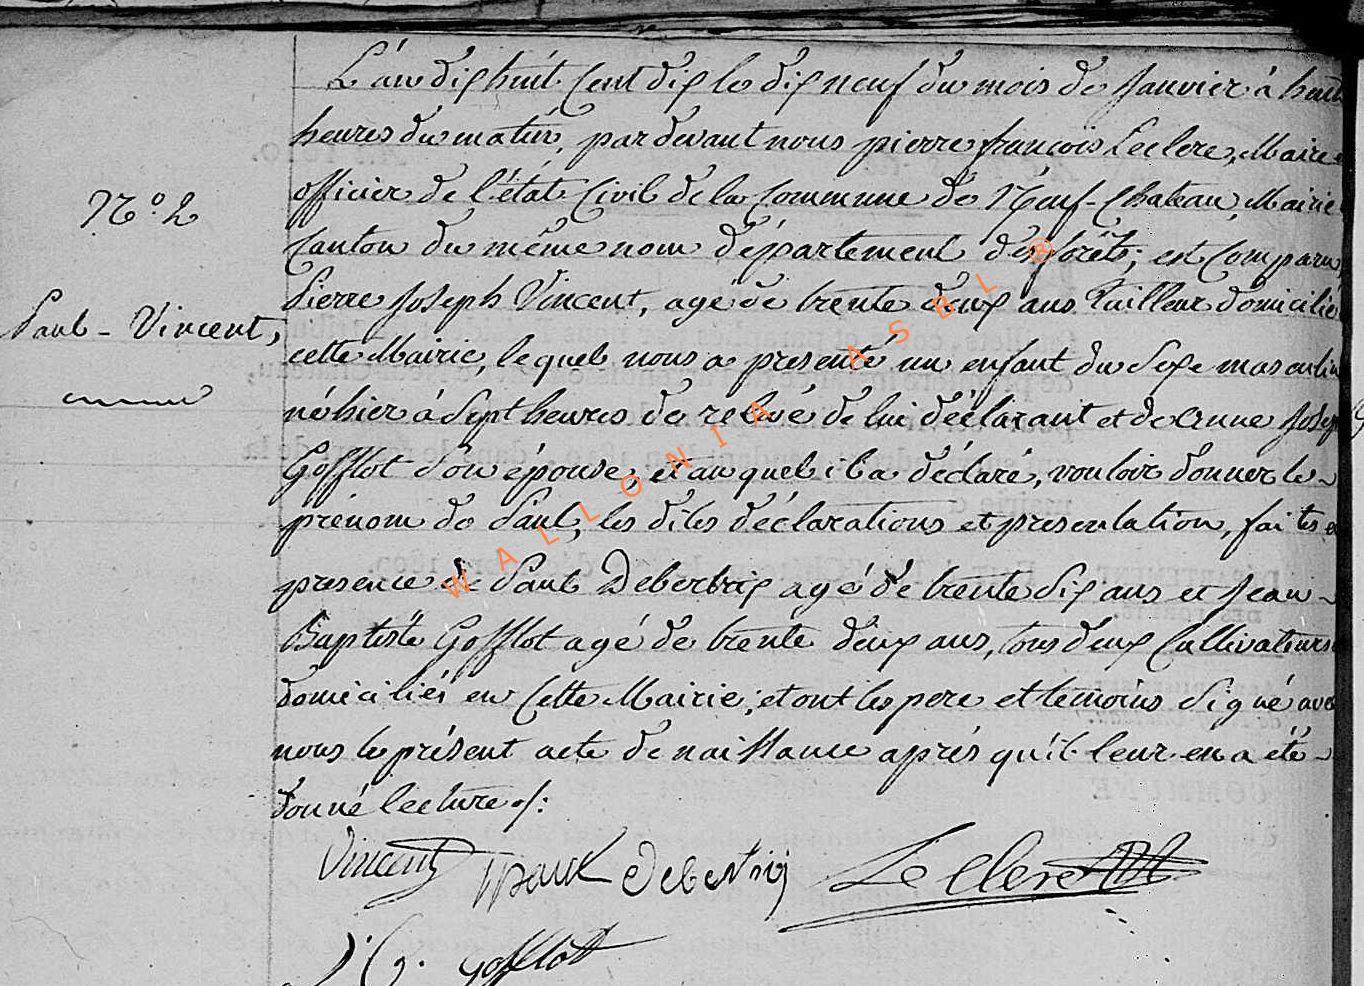 L'an dix huit Cent dix le dix neuf du mois de Janvier à huit
heures du matin, pardevant nous pierre françois Leclere, Maire
officier de l'état Civil de la Commune de Neuf-Chateau, Mairie
Canton du même nom département des forêts; est Comparu
N.° 2
Pierre Joseph Vincent, agé de trente deux ans Tailleur domicilié
Paul - Vincent,
cette Mairie, lequel nous a presenté un enfant du Sexe masculin
né hier à Sept heures de relevé de lui déclarant et de Anne Josep
Gofflot Son épouse, et auquel il a déclaré, vouloir donner le
prénom de Paul, les dites déclarations et presentation, faites
presence de Paul agé de trente Six ans et Jean
Baptiste Gofflot agé de trente deux ans, tous deux Cultivateurs
domiciliés en Cette Mairie; et ont les pere et temoins Signé avec
nous le présent acte de naissance après qu'il leur en a été
donné lecture ./:
Vincent paul Leclere
J. G. Gofflot
WALLONIA ASBL ®